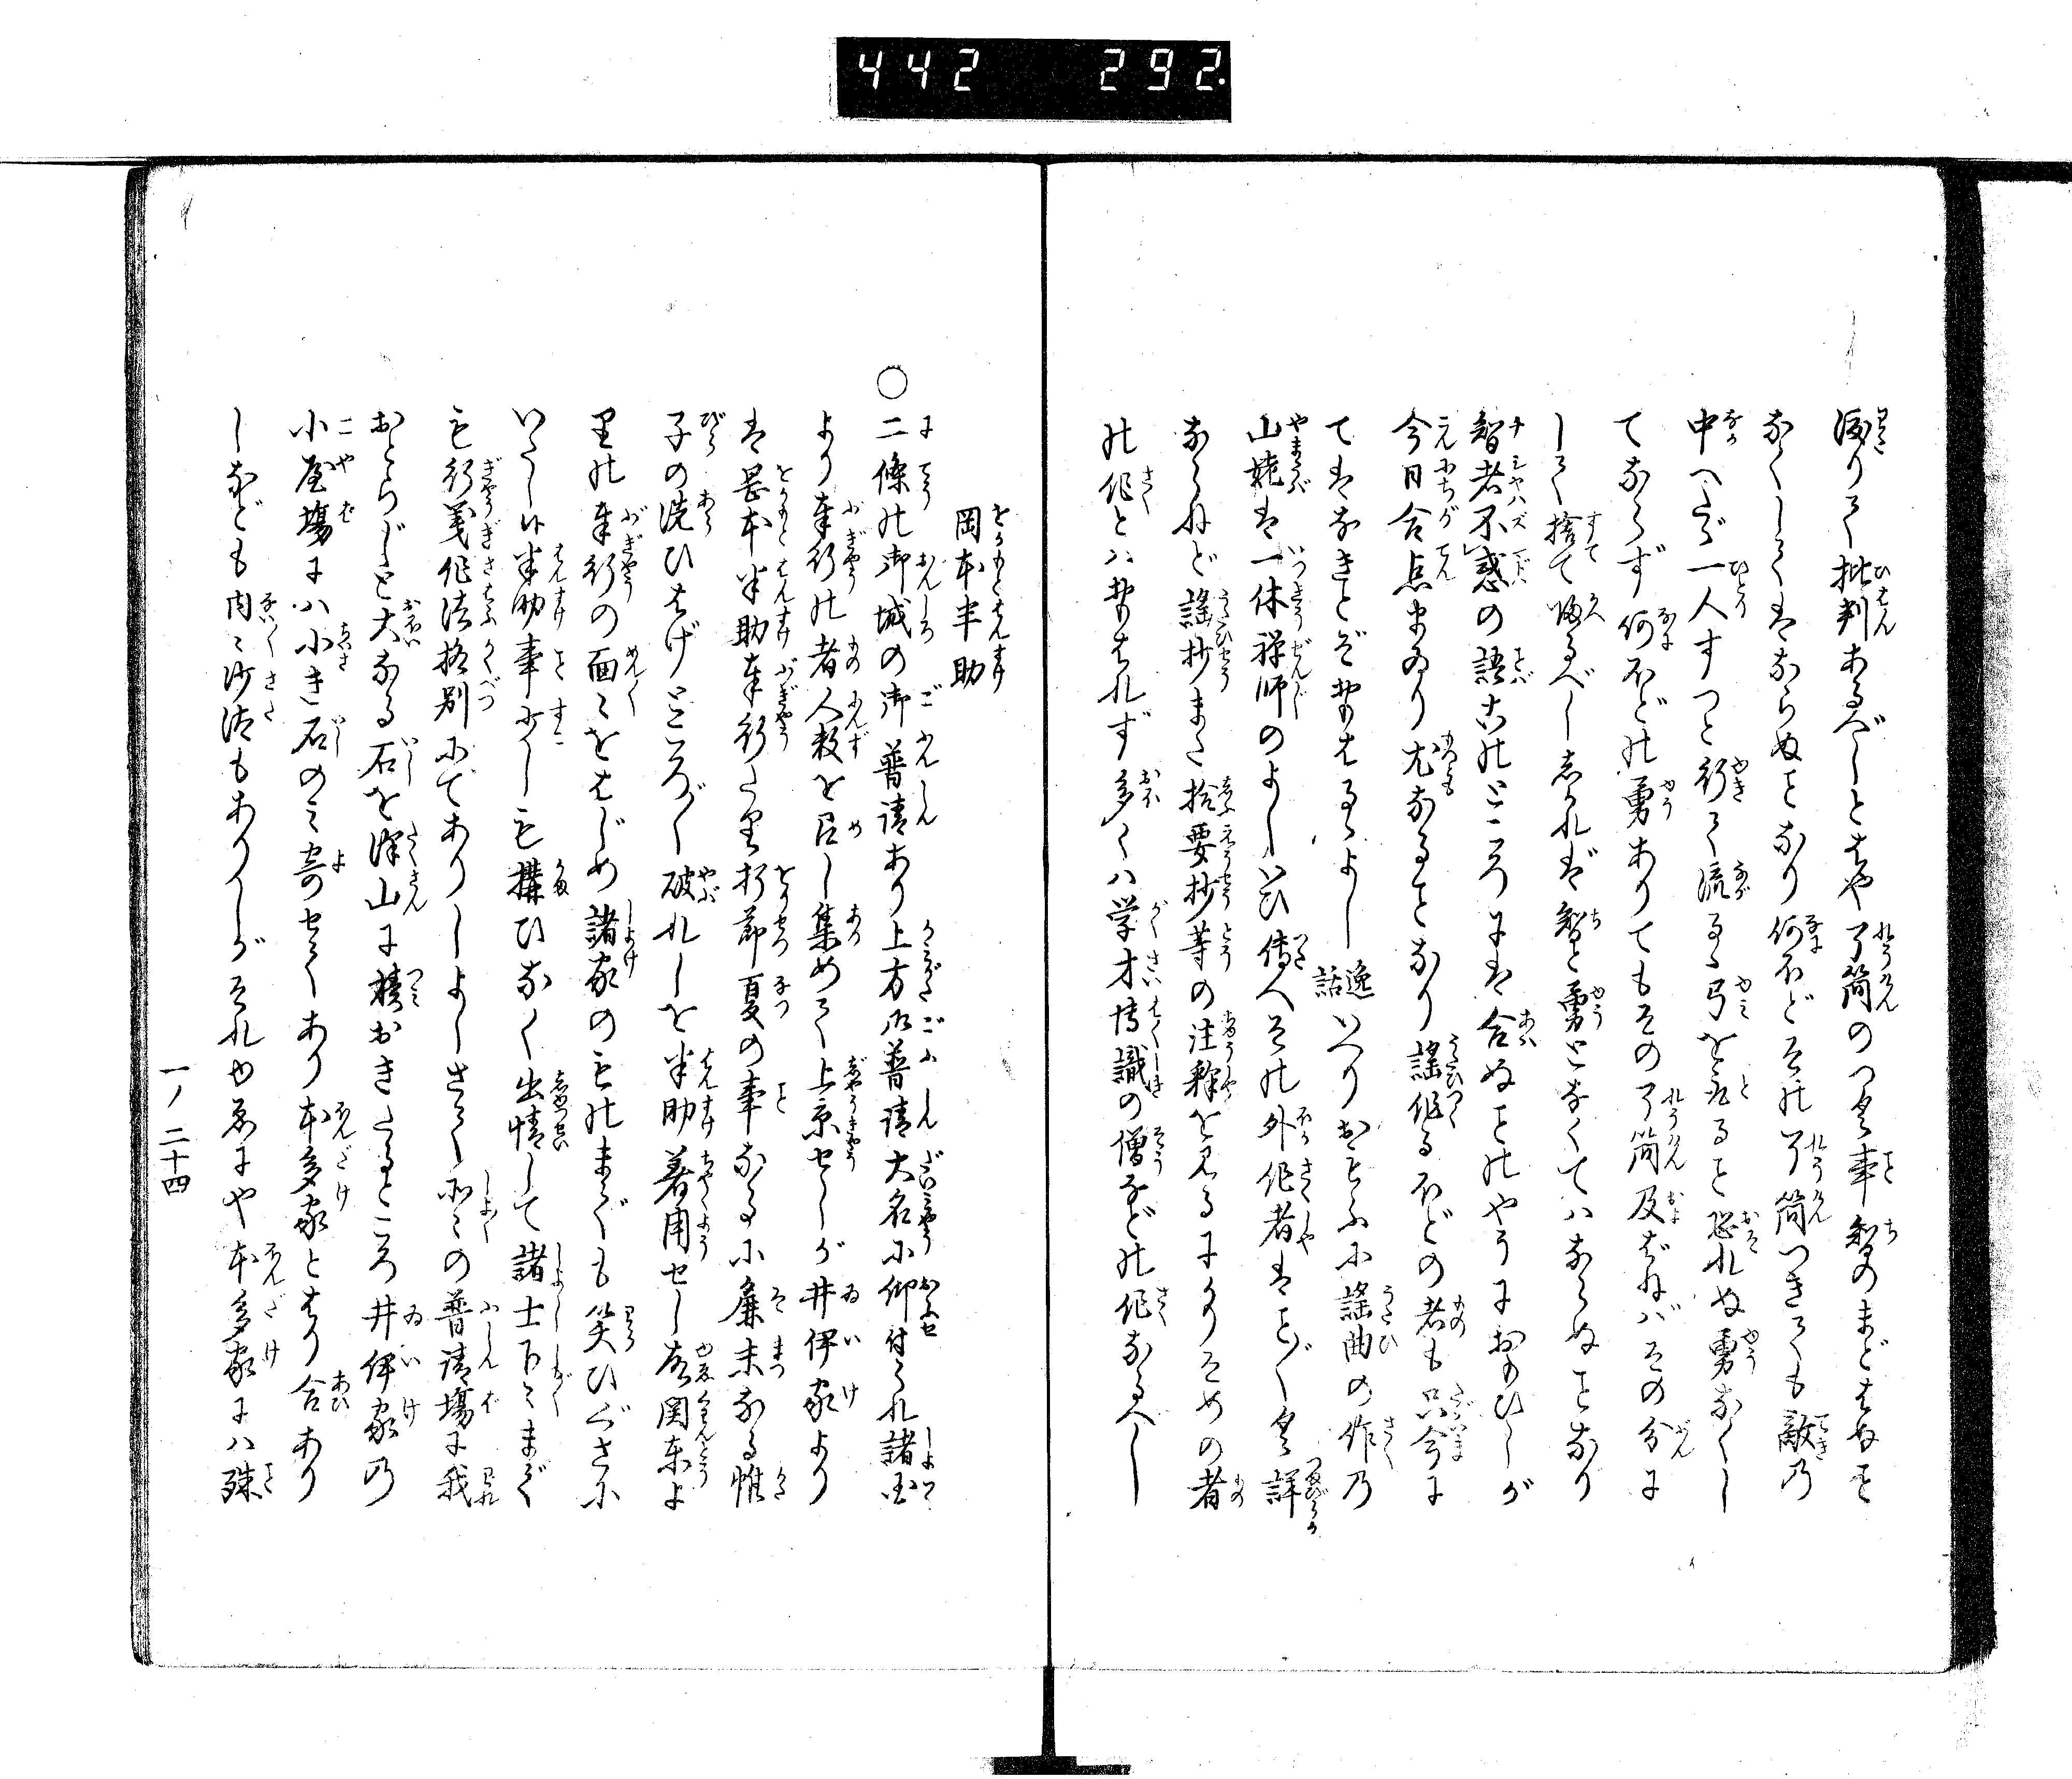 442 292.
渡りて批判あるべしとはや了簡のつく事智のまどはぬと
なくしてはならぬことなり何ほどその了簡つきても敵の
中へたゞ一人すつと行て流るゝ弓を取ると恐れぬ勇なくし
てならず何ほどの勇ありてもその了簡及ばねバその分に
して捨て帰るべしされば智と勇となくてハならぬことなり
智者不惑の語古のところには合ぬことのやうにおもひしが
今日合点まゐり尤なることなり謡作るほどの者も只今に
てはなきとぞ申はるよし 逸話 いへりおもふに謡曲の作の
山姥は一休禅師のよしいひ伝へその外作者はこと〴〵く詳
ならねど謡抄また拾要抄等の注釈を見るにかりそめの者
の作とハ申はれず多くハ学才博識の僧などの作なるべし
岡本半助
○二條の御城の御普請あり上方御普請大名に仰付られ諸国
より奉行の者人数を召し集めて上京せしが井伊家より
は岡本半助奉行たり折節夏の事なるに麁末なる帷
子の洗ひはげところ〴〵破れしを半助着用せし故関東よ
りの奉行の面々をはじめ諸家のものまでも笑ひぐさに
いたし候半助事少しも構ひなく出情して諸士下々まで
も行義作法格別にてありしよしさて所々の普請場に我
おとらじと大なる石を沢山に積おきたるところ井伊家の
小屋場にハ小き石のミ寄せてあり本多家とはり合あり
しなども内々沙汰もありしがそれゆゑにや本多家にハ殊
一ノ二十四